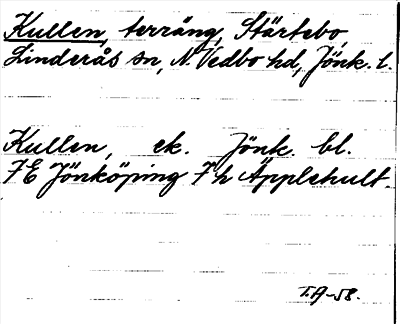 Kullen, terräng, Stärtebo,
Linderås sn, N. Vedbo hd, Jönk. l.
Kullen, ek. Jönk. bl.
7E Jönköping 7h Äpplehult.
T.A-58.